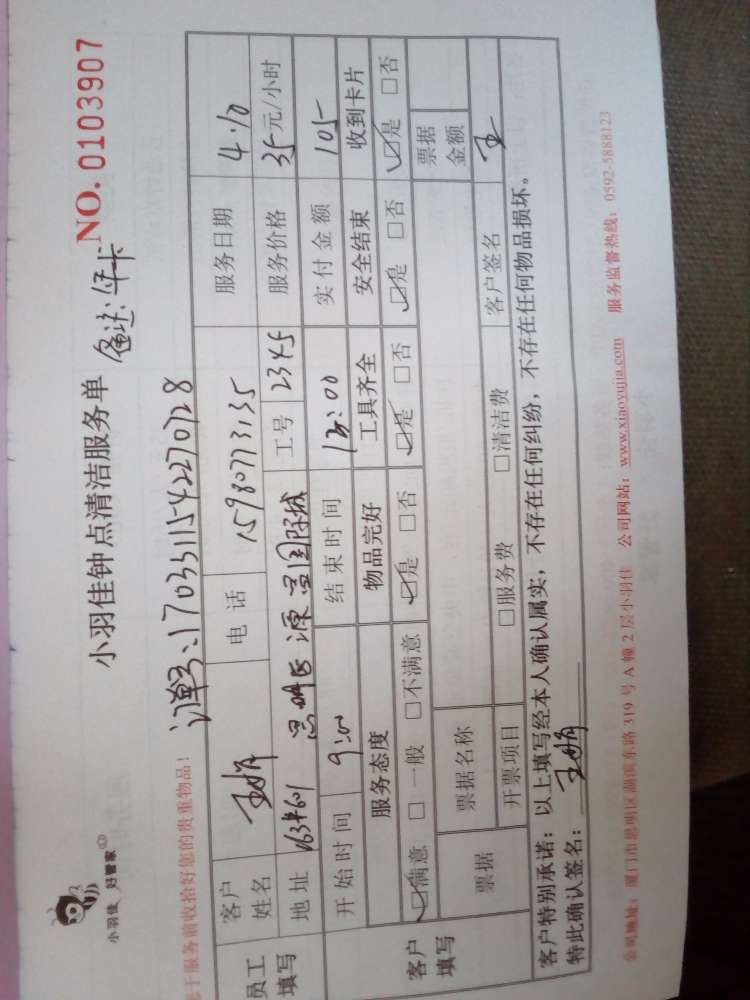 小羽佳 好管家
小羽佳钟点清洁服务单
备注:年卡
NO. 0103907
于服务前收拾好您的贵重物品!
订单号:17033111542270728
员工填写
客户姓名 王娟 电话 15980773135 服务日期 4.10
地址 163#601 思明区 源昌国际城 工号 2345 服务价格 35元/小时
开始时间 9:00 结束时间 12:00 实付金额 105
客户填写
服务态度 物品完好 工具齐全 安全结束 收到卡片
☑满意 □一般 □不满意 ☑是 □否 ☑是 □否 ☑是 □否 ☑是 □否
票据 票据名称 票据金额
开票项目 □服务费 □清洁费 客户签名 王
客户特别承诺:以上填写经本人确认属实,不存在任何纠纷,不存在任何物品损坏。
特此确认签名:王娟
公司地址:厦门市思明区湖滨东路 319 号 A 幢 2 层小羽佳 公司网站:www.xiaoyujia.com 服务监督热线:0592-5888123